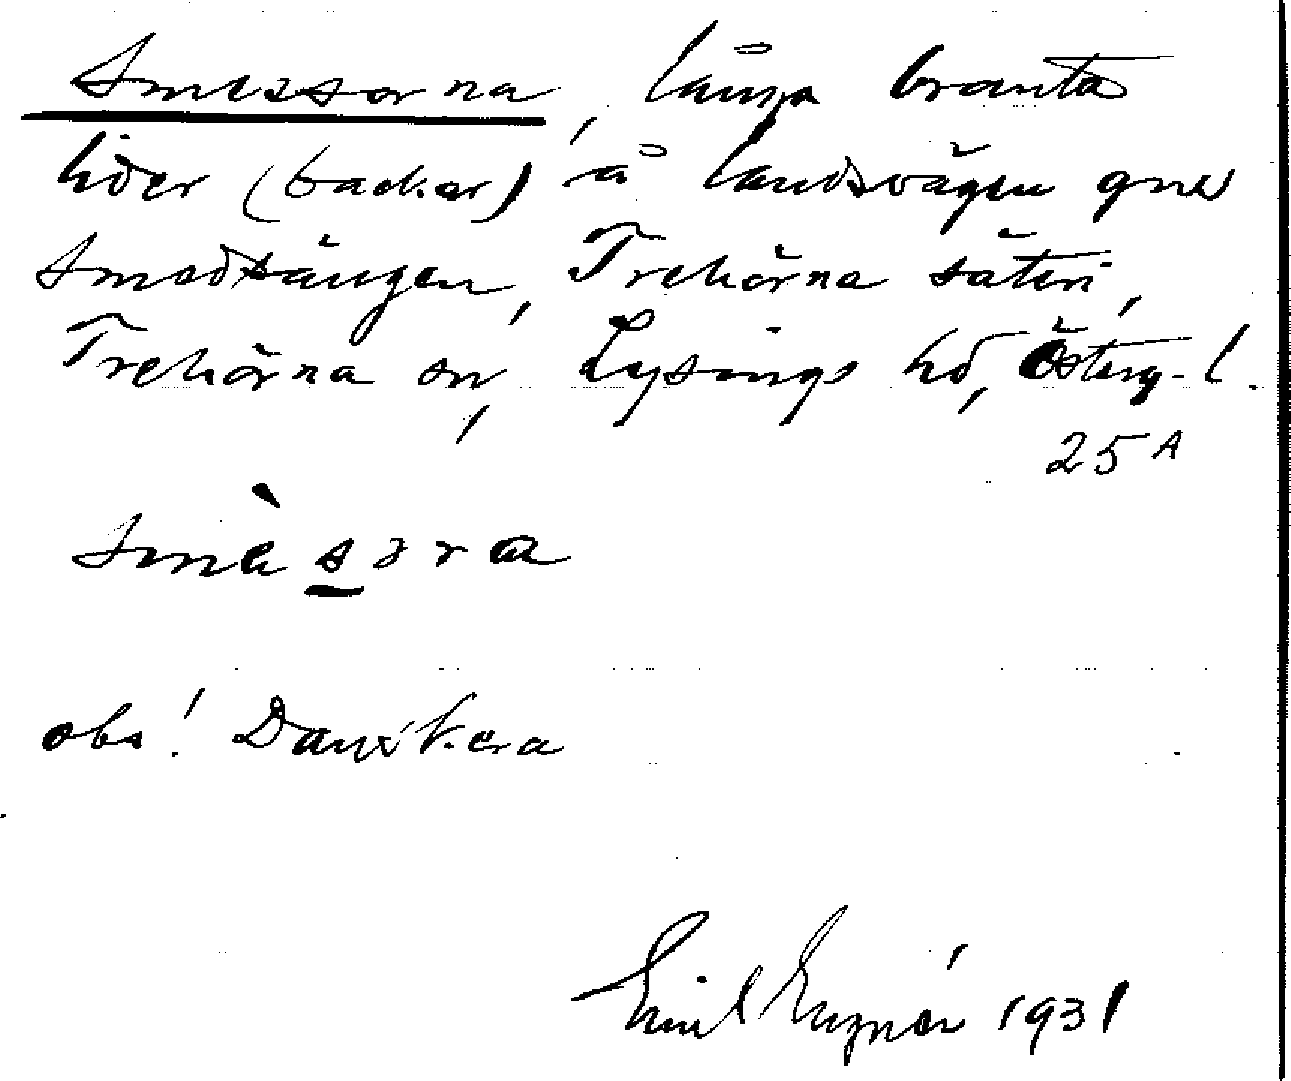 Smessorna, långa branta
lider (backar) å landsvägen gnm
Smedsängen, Trehörna säteri,
Trehörna sn, Lysings hd, Österg. l.
25 A
smè s ɜ r a
obs! Danskera
Emil Engnér 1931